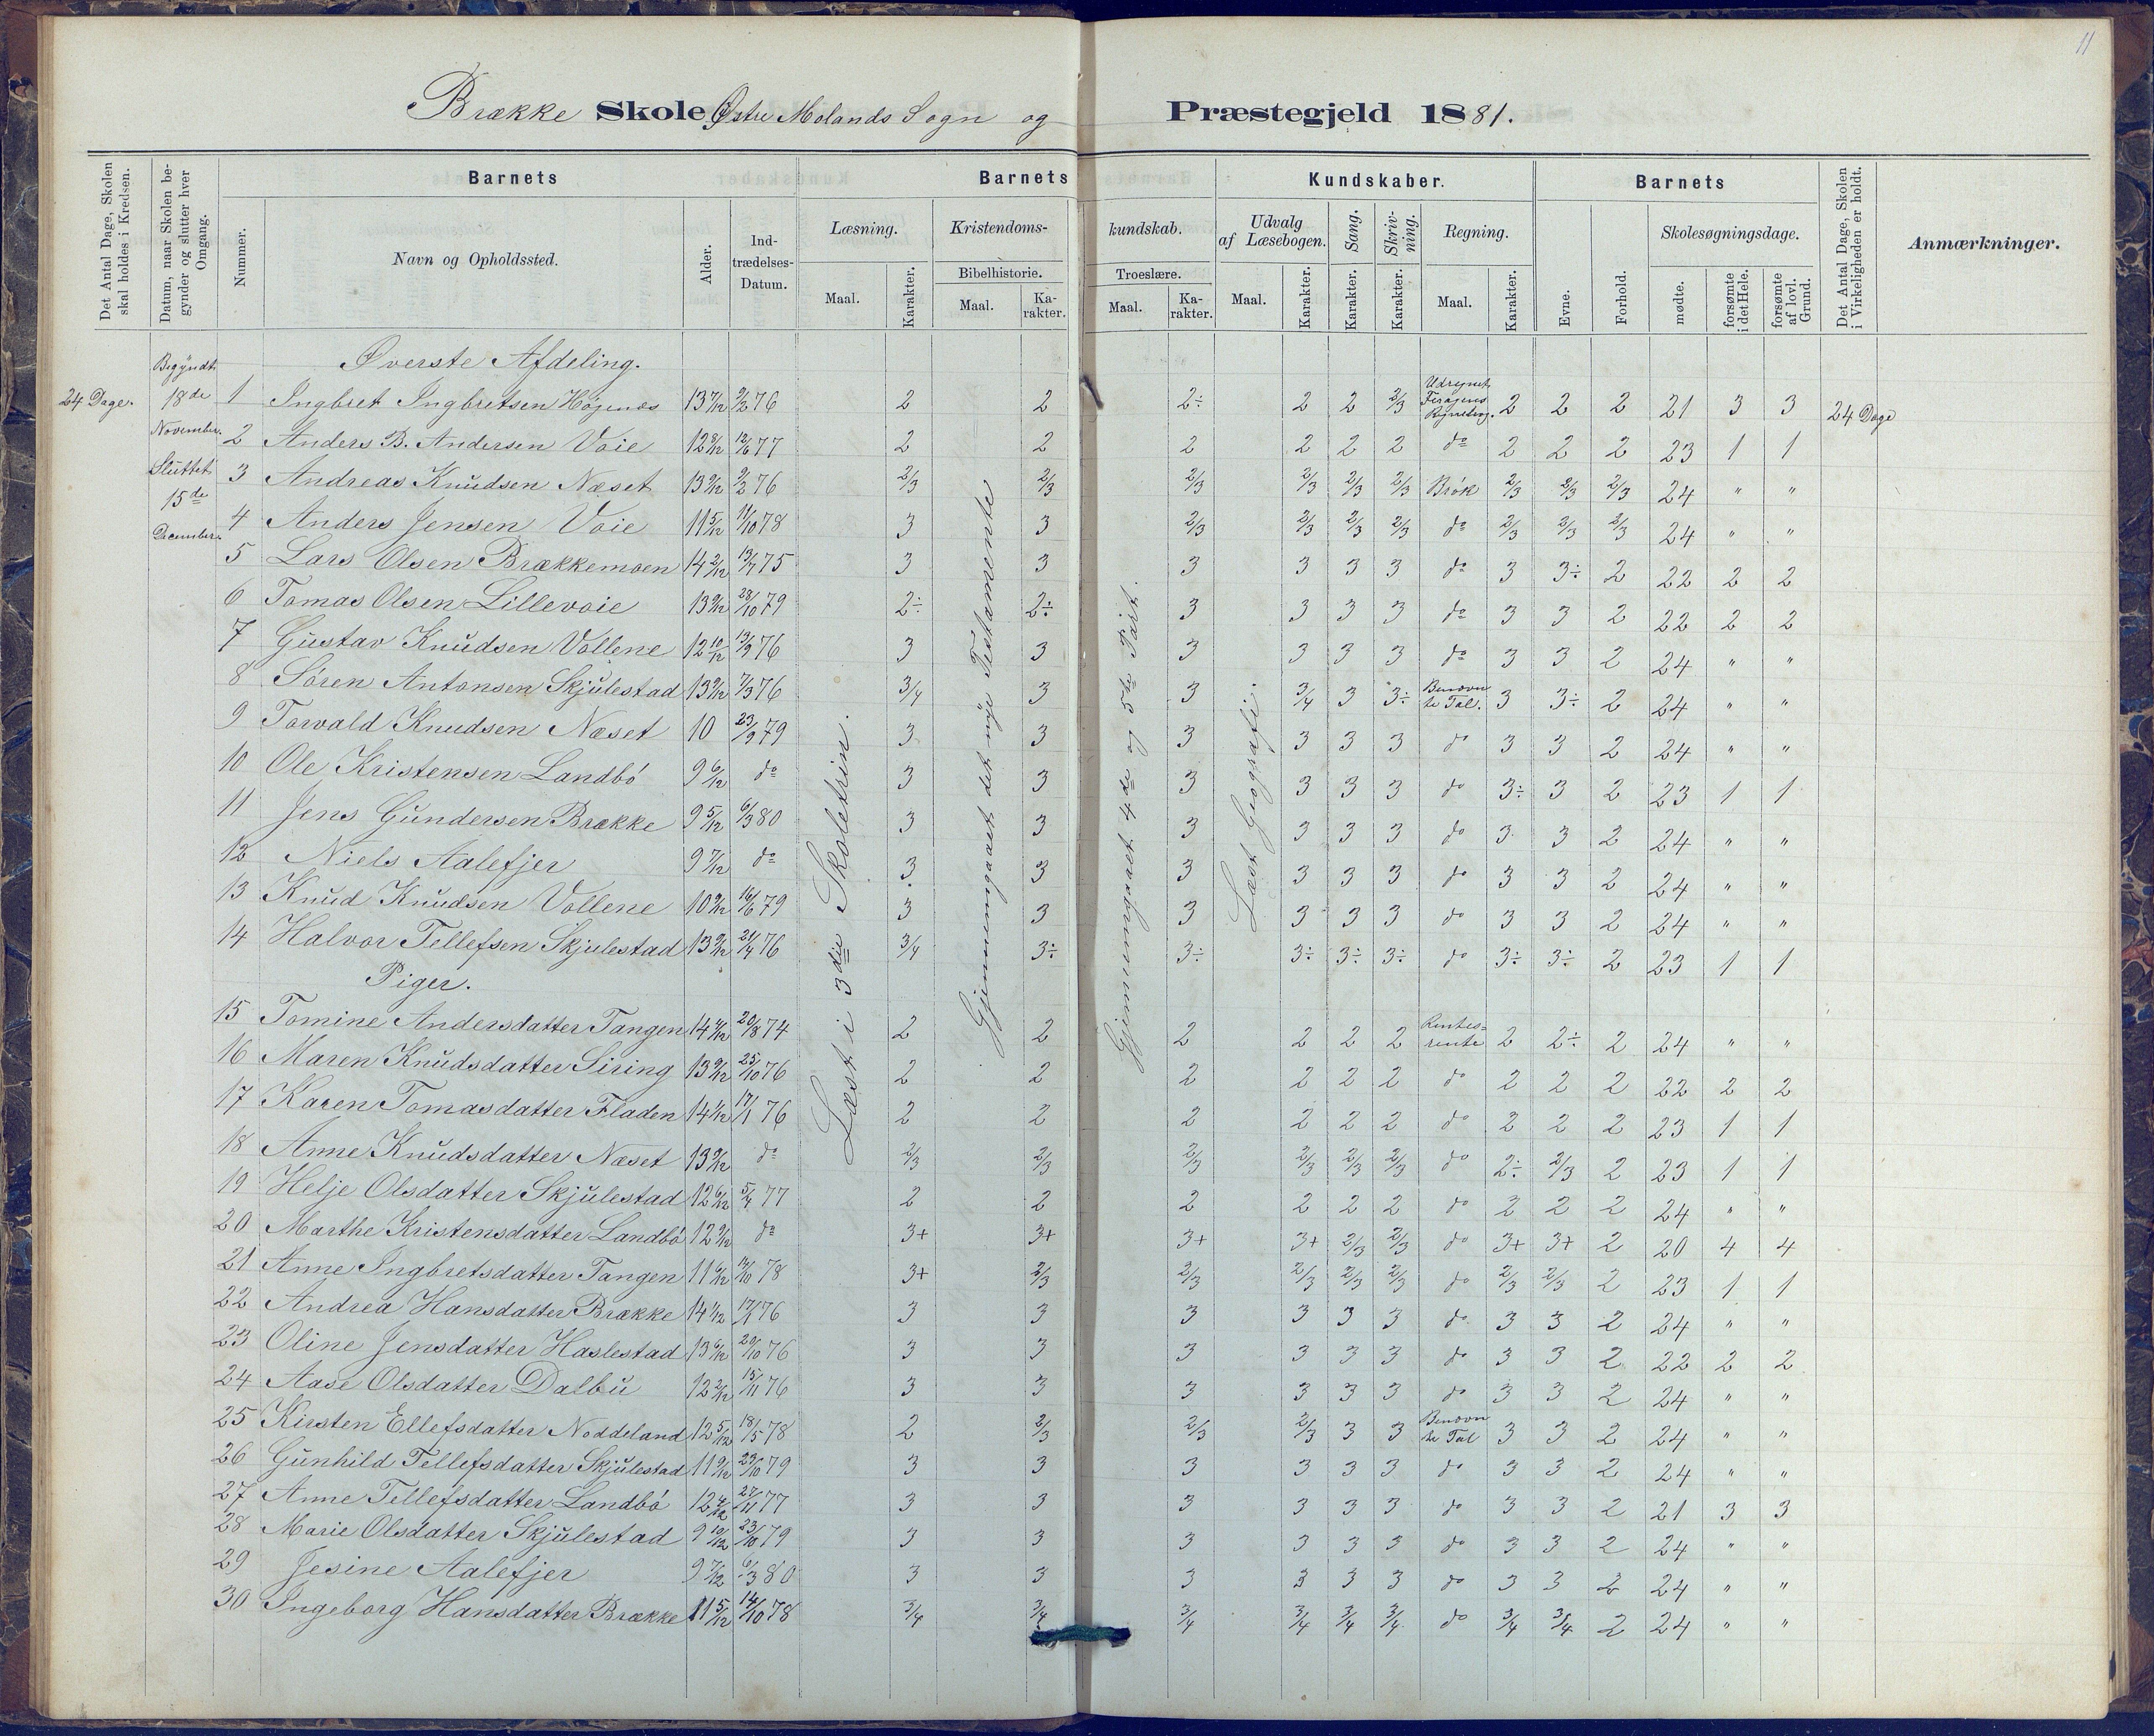 11
Brække Skole Østre Molands Sogn og Præstegjeld 1881.
Det Antal Dage, Skolen skal holdes i Kredsen.
Datum, naar Skolen begynder og slutter hver Omgang.
Barnets
Nummer.
Navn og Opholdssted.
Alder.
Indtrædelses-Datum.
Barnets Kundskaber.
Læsning.
Maal. Karakter.
Kristendoms-kundskab.
Bibelhistorie.
Maal. Karakter.
Troeslære.
Maal. Karakter.
Udvalg af Læsebogen.
Maal. Karakter.
Sang.
Karakter.
Skrivning.
Karakter.
Regning.
Maal. Karakter.
Barnets
Evne.
Forhold.
Skolesøgningsdage.
mødte.
forsømte i det Hele.
forsømte af lovl. Grund.
Det Antal Dage, Skolen i Virkeligheden er holdt.
Anmærkninger.
24 Dage.
Begyndt
18de
November.
Sluttet
15de
December.
Læst i 3die Skoletrin.
Gjennemgaaet det nye Testamente
Gjennemgaaet 4de og 5te Part.
Læst Geografi.
24 Dage
Øverste Afdeling.
1 Ingbret Ingbretsen Højenæs 13 7/12 9/2 76 2 2 2÷ 2 2 2/3 Udregnet 2 2 2 21 3 3
2 Anders B. Andersen Voie 12 8/12 12/6 77 2 2 2 2 2 2 do 2 2 2 23 1 1
3 Andreas Knudsen Næset 13 9/12 9/2 76 2/3 2/3 2/3 2/3 2/3 2/3 Brøk 2/3 2/3 2/3 24 " "
4 Anders Jensen Voie 11 5/12 11/10 78 3 3 2/3 2/3 2/3 2/3 do 2/3 2/3 2/3 24 " "
5 Lars Olsen Brækkemoen 14 2/12 13/7 75 3 3 3 3 3 3 do 3 3÷ 2 22 2 2
6 Tomas Olsen Lillevoie 13 9/12 28/10 79 2÷ 2÷ 3 3 3 3 do 3 3 2 22 2 2
7 Gustav Knudsen Vollene 12 10/12 13/9 76 3 3 3 3 3 3 do 3 3 2 24 " "
8 Søren Antonsen Skjulestad 13 9/12 7/3 76 3/4 3 3 3/4 3 3÷ Benævnte Tal. 3 3÷ 2 24 " "
9 Torvald Knudsen Næset 10 23/9 79 3 3 3 3 3 3 do 3 3 2 24 " "
10 Ole Kristensen Landbö 9 6/12 do 3 3 3 3 3 3 do 3÷ 3 2 23 1 1
11 Jens Gundersen Brække 9 5/12 6/3 80 3 3 3 3 3 3 do 3 3 2 24 " "
12 Niels Aalefjer 9 7/12 do 3 3 3 3 3 3 do 3 3 2 24 " "
13 Knud Knudsen Vollene 10 9/12 16/6 79 3 3 3 3 3 3 do 3 3 2 24 " "
14 Halvor Tellefsen Skjulestad 13 9/12 24/4 76 3/4 3÷ 3÷ 3÷ 3÷ 3÷ do 3÷ 3÷ 2 23 1 1
Piger.
15 Tomine Andersdatter Tangen 14 4/12 20/8 74 2 2 2 2 2 2 Rentesrente 2 2÷ 2 24 " "
16 Maren Knudsdatter Siring 13 9/12 25/10 76 2 2 2 2 2 2 do 2 2 2 22 2 2
17 Karen Tomasdatter Fladen 14 1/12 17/1 76 2 2 2 2 2 2 do 2 2 2 23 1 1
18 Anne Knudsdatter Næset 13 9/12 do 2/3 2/3 2/3 2/3 2/3 2/3 do 2÷ 2/3 2 23 1 1
19 Helje Olsdatter Skjulestad 12 6/12 5/4 77 2 2 2 2 2 2 do 2 2 2 24 " "
20 Marthe Kristensdatter Landbö 12 9/12 do 3+ 3+ 3+ 3+ 2/3 2/3 do 3+ 3+ 2 20 4 4
21 Anne Ingbretsdatter Tangen 11 6/12 14/10 78 3+ 2/3 2/3 2/3 2/3 2/3 do 2/3 2/3 2 23 1 1
22 Andrea Hansdatter Brække 14 1/12 17/1 76 3 3 3 3 3 3 do 3 3 2 24 " "
23 Oline Jensdatter Haslestad 13 6/12 20/10 76 3 3 3 3 3 3 do 3 3 2 22 2 2
24 Aase Olsdatter Dalbu 12 2/12 15/11 76 3 3 3 3 3 3 do 3 3 2 24 " "
25 Kirsten Ellefsdatter Noddeland 12 5/12 18/5 78 2 2/3 2/3 2/3 3 3 Benævnte Tal 3 3 2 24 " "
26 Gunhild Tellefsdatter Skjulestad 11 9/12 23/10 79 3 3 3 3 3 3 do 3 3 2 24 " "
27 Anne Tellefsdatter Landbö 12 4/12 27/11 77 3 3 3 3 3 3 do 3 3 2 21 3 3
28 Marie Olsdatter Skjulestad 9 10/12 23/10 79 3 3 3 3 3 3 do 3 3 2 24 " "
29 Jesine Aalefjer 9 7/12 6/3 80 3 3 3 3 3 3 do 3 3 2 24 " "
30 Ingeborg Hansdatter Brække 11 5/12 14/10 78 3/4 3/4 3/4 3/4 3/4 3/4 do 3/4 3/4 2 24 " "